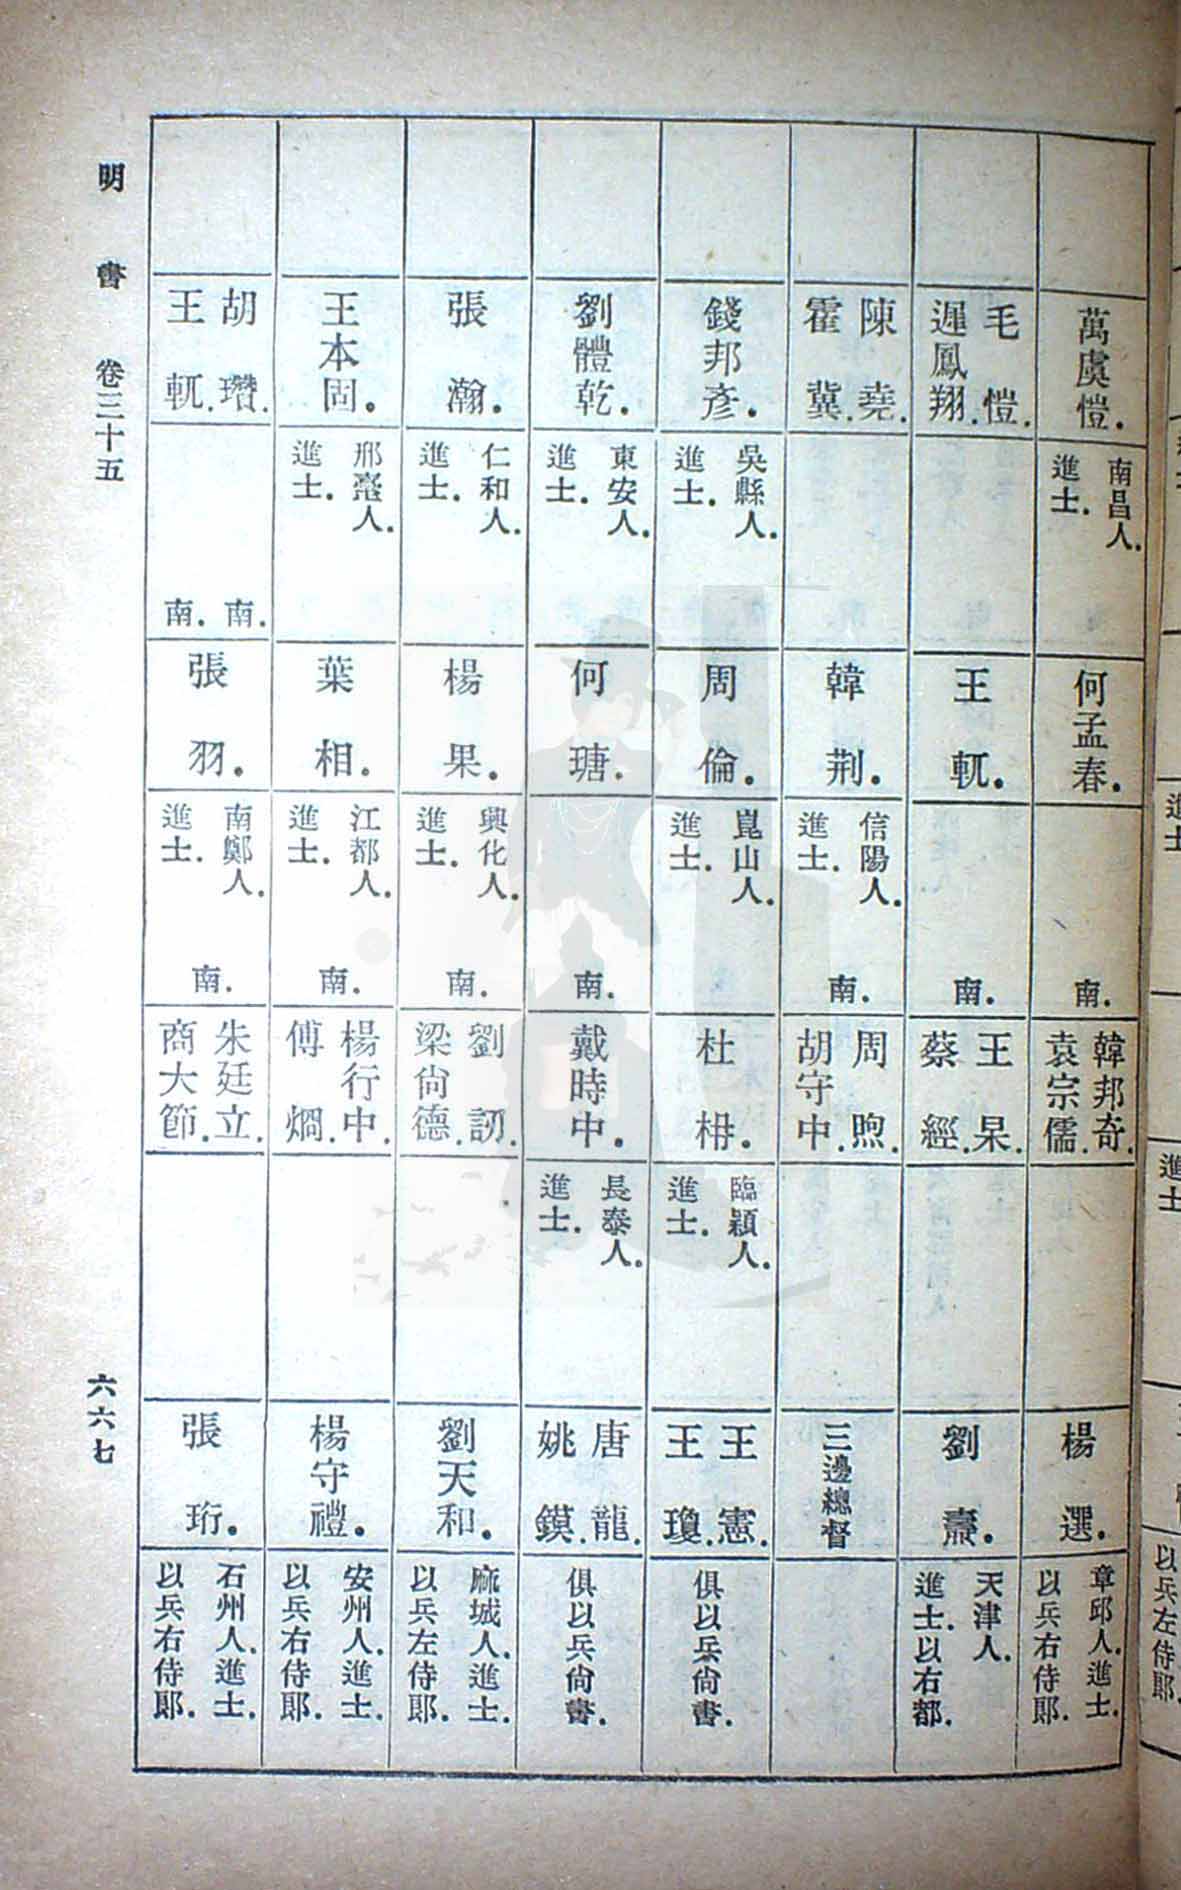 萬虞愷.
南昌人.
進士.
何孟春.
南.
韓邦奇.
袁宗儒.
楊選.
章邱人.進士.
以兵右侍郎.
毛愷.
遲鳳翔.
王軏.
南.
王杲.
蔡經.
劉燾.
天津人.
進士.以右都.
陳堯.
霍冀.
韓荆.
信陽人.
進士.
南.
周煦.
胡守中.
三邊總督
錢邦彥.
吳縣人.
進士.
周倫.
崑山人.
進士.
杜枏.
臨潁人.
進士.
王憲.
王瓊.
俱以兵尚書.
劉體乾.
東安人.
進士.
何瑭.
南.
戴時中.
長泰人.
進士.
唐龍.
姚鏌.
俱以兵尚書.
張瀚.
仁和人.
進士.
楊果.
興化人.
進士.
南.
劉訒.
梁尚德.
劉天和.
麻城人.進士.
以兵左侍郎.
王本固.
邢臺人.
進士.
葉相.
江都人.
進士.
南.
楊行中.
傅烱.
楊守禮.
安州人.進士.
以兵右侍郎.
胡瓚.
王軏.
南.
南.
張羽.
南鄭人.
進士.
南.
朱廷立.
商大節.
張珩.
石州人.進士.
以兵右侍郎.
明書 卷三十五
六六七